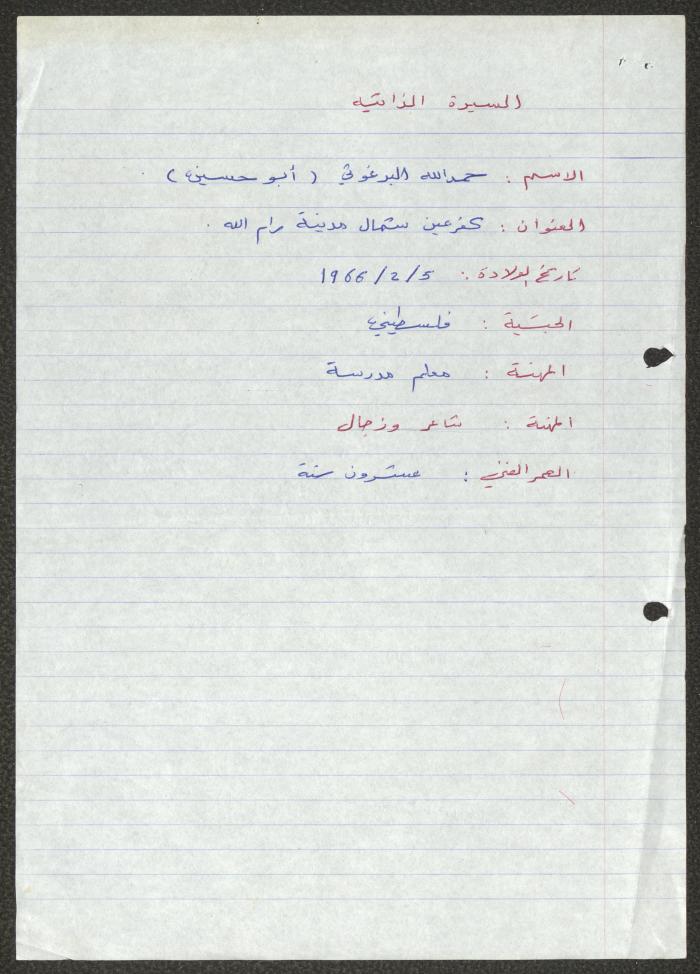 السيرة الذاتية
الاسم : حمدالله البرغوثي (أبو حسين) .
العنوان : كفرعين شمال مدينة رام الله .
تاريخ الولادة : 1966/2/5
الجنسية : فلسطيني
المهنة : معلم مدرسة
المهنة : شاعر وزجال
العمر الفني : عشرون سنة